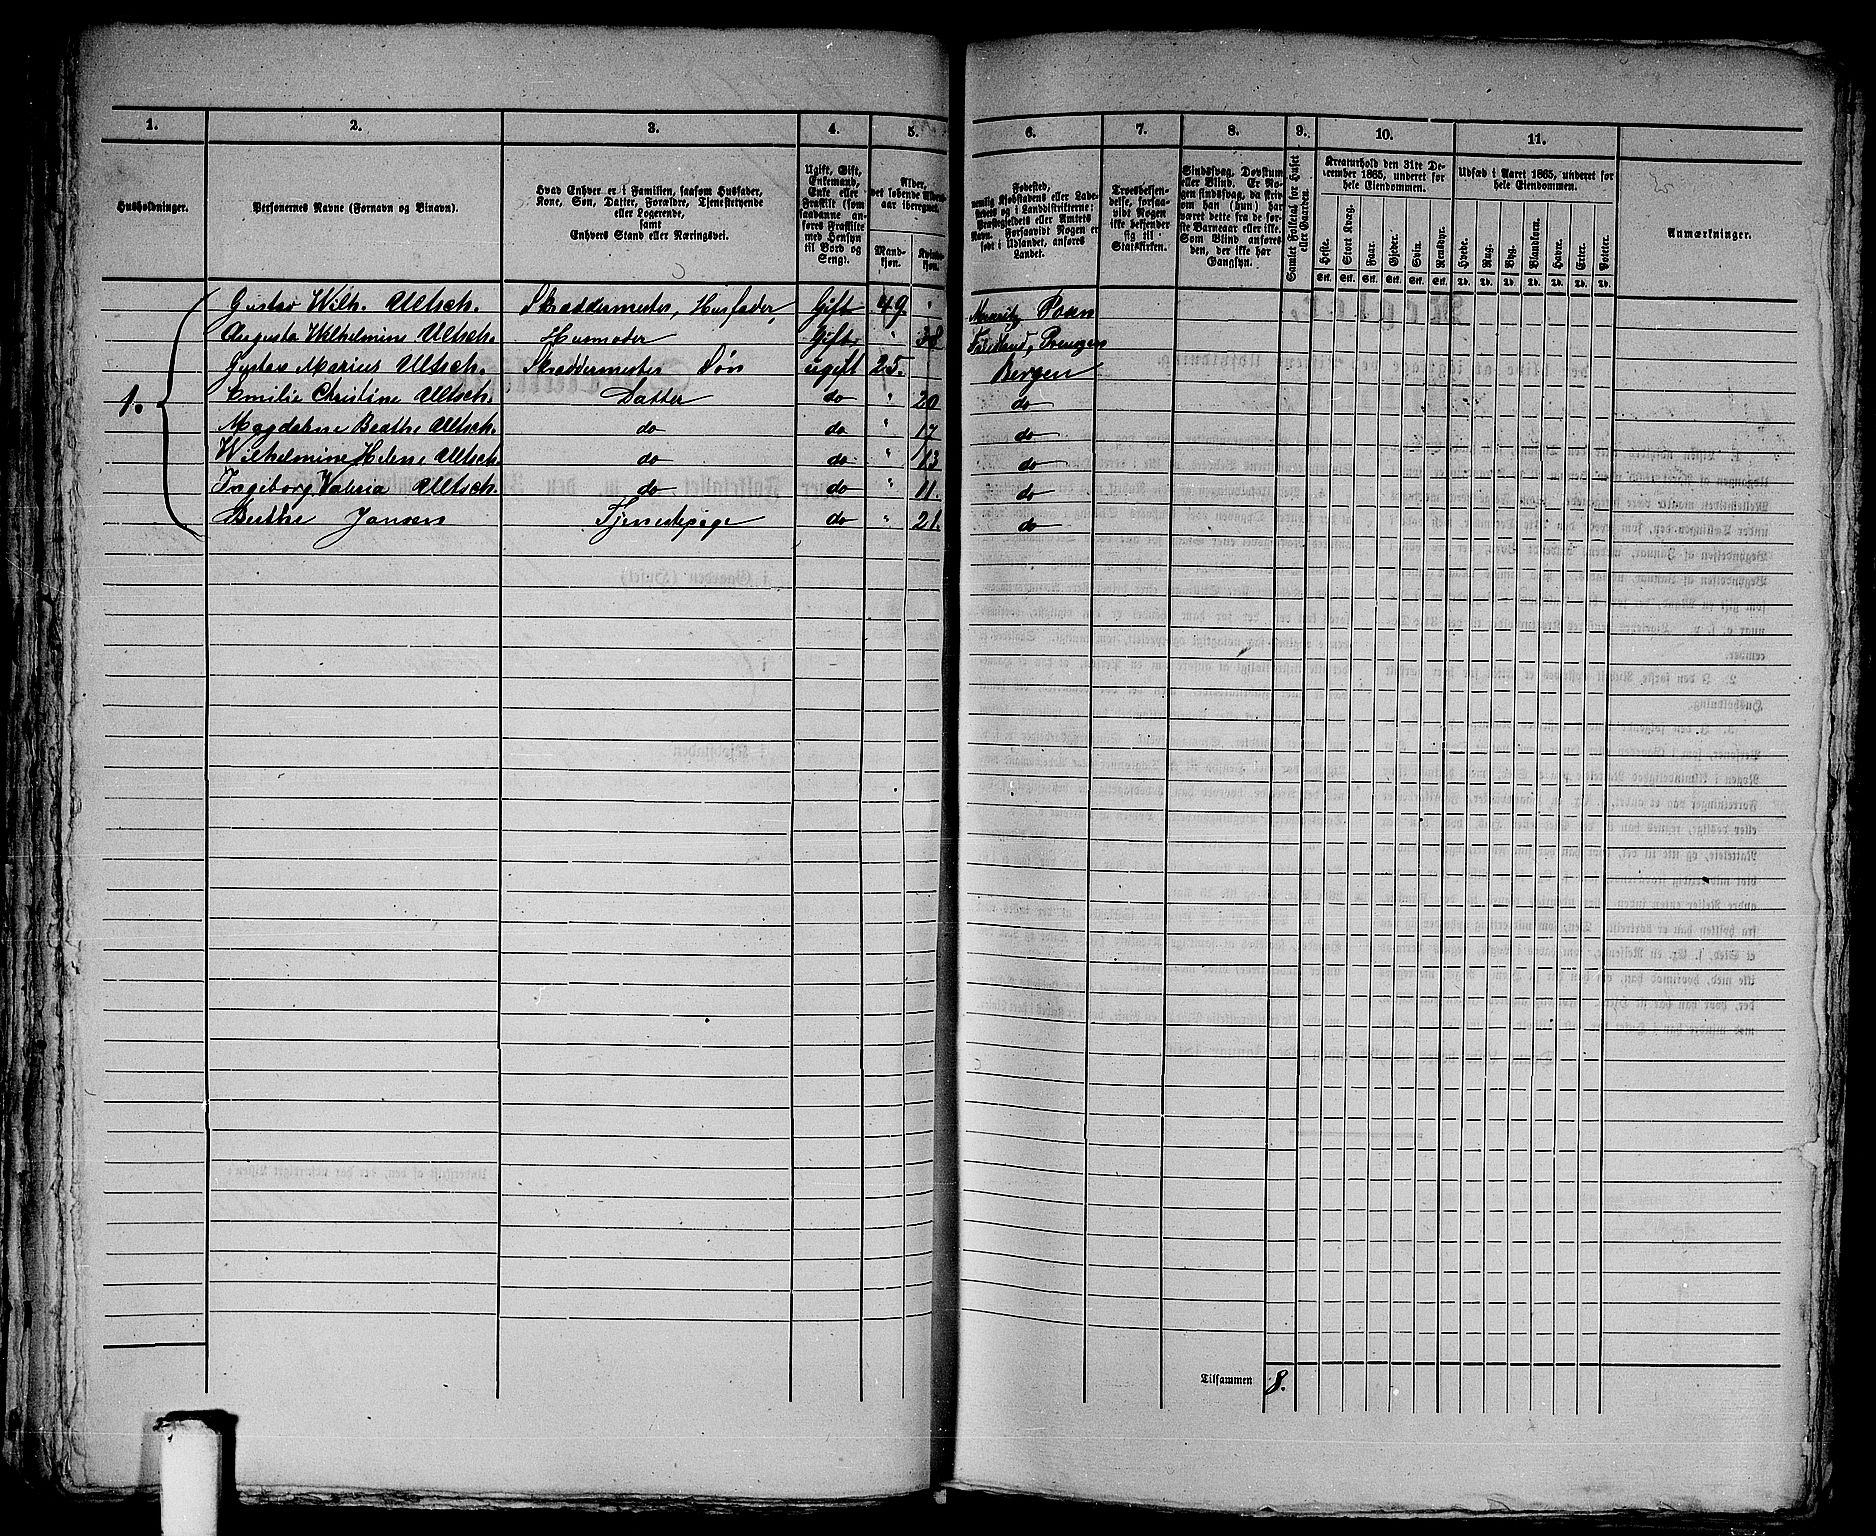 1. 2. 3. 4. 5. 6. 7. 8. 9. 10. 11.
Husholdninger.
Personernes Navne (Fornavn og Binavn).
Hvad Enhver er i Familien, saasom Husfader,
Kone, Søn, Datter, Forældre, Tjenestetyende
eller Logerende,
samt
Enhvers Stand eller Næringsvei.
Ugift, Gift,
Enkemand,
Enke eller
Fraskilt (som
saadanne an-
føres Fraskilte
med Hensyn
til Bord og
Seng).
Alder,
det løbende Alders-
aar iberegnet.
Mand-
kjøn.
Kvinde-
kjøn.
Fødested,
nemlig Kjøbstadens eller Lade-
stedets og i Landdistrikterne:
Præstegjeldets eller Amtets
Navn. Forsaavidt Nogen er
født i Udlandet, anføres
Landet.
Troesbekjen-
delse, forsaa-
vidt Nogen
ikke bekjender
sig til
Statskirken.
Sindssvag, Døvstum
eller Blind. Er No-
gen sindssvag, da skriv
om han (hun) har
været dette fra de før-
ste Barneaar eller ikke.
Som Blind anføres
den, der ikke har
Gangsyn.
Samlet Folketal for Huset
eller Gaarden.
Kreaturhold den 31te De-
cember 1865, underet for
hele Eiendommen.
Heste. Stort Kvæg. Faar. Gjeder. Sviin. Rensdyr.
Stk. Stk. Stk. Stk. Stk. Stk.
Udsæd i Aaret 1865, underet for
hele Eiendommen.
Hvede. Rug. Byg. Blandkorn. Havre. Erter. Poteter.
Td. Td. Td. Td. Td. Td. Td.
Anmærkninger.
1.
Gustav Wilh. Ultsch. Skræddermester, Husfader, Gift 49. " Posen
Augusta Wilhelmine Ultsch. Husmoder Gift " 38 Preussen
Gustav Marius Ultsch. Skræddermester Søn ugift 25. Bergen
Emilie Christine Ultsch. Datter do " 20 do
Magdalene Beathe Ultsch. do do " 17 do
Wilhelmine Helene Ultsch. do do " 13 do
Ingeborg Valeria Ultsch. do do " 11. do
Berthe Jansen Tjenestepige do " 21. do
Tilsammen 8.